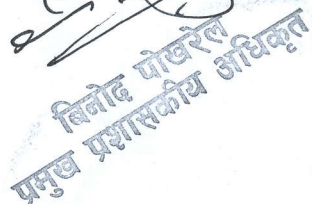 बिनोद पोखरेल
प्रमुख प्रशासकीय अधिकृत